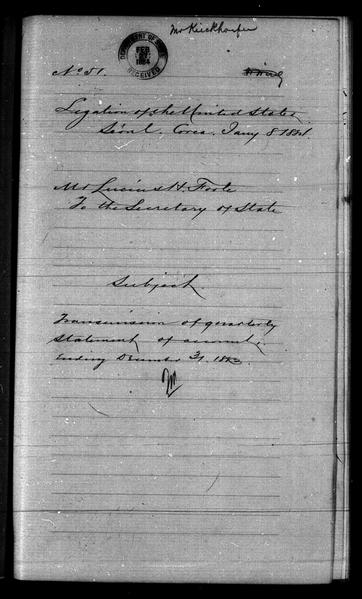 Mr Kieckhoefer
DEPARTMENT OF STATE
FEB
1884
RECEIVED
No 51.
Legation of the United States
Söul, Corea, Jany 8 1884
Mr Lucius H. Foote
To the Secretary of State
Subject.
Transmission of quarterly
statement of accounts,
ending December 31. 1883.